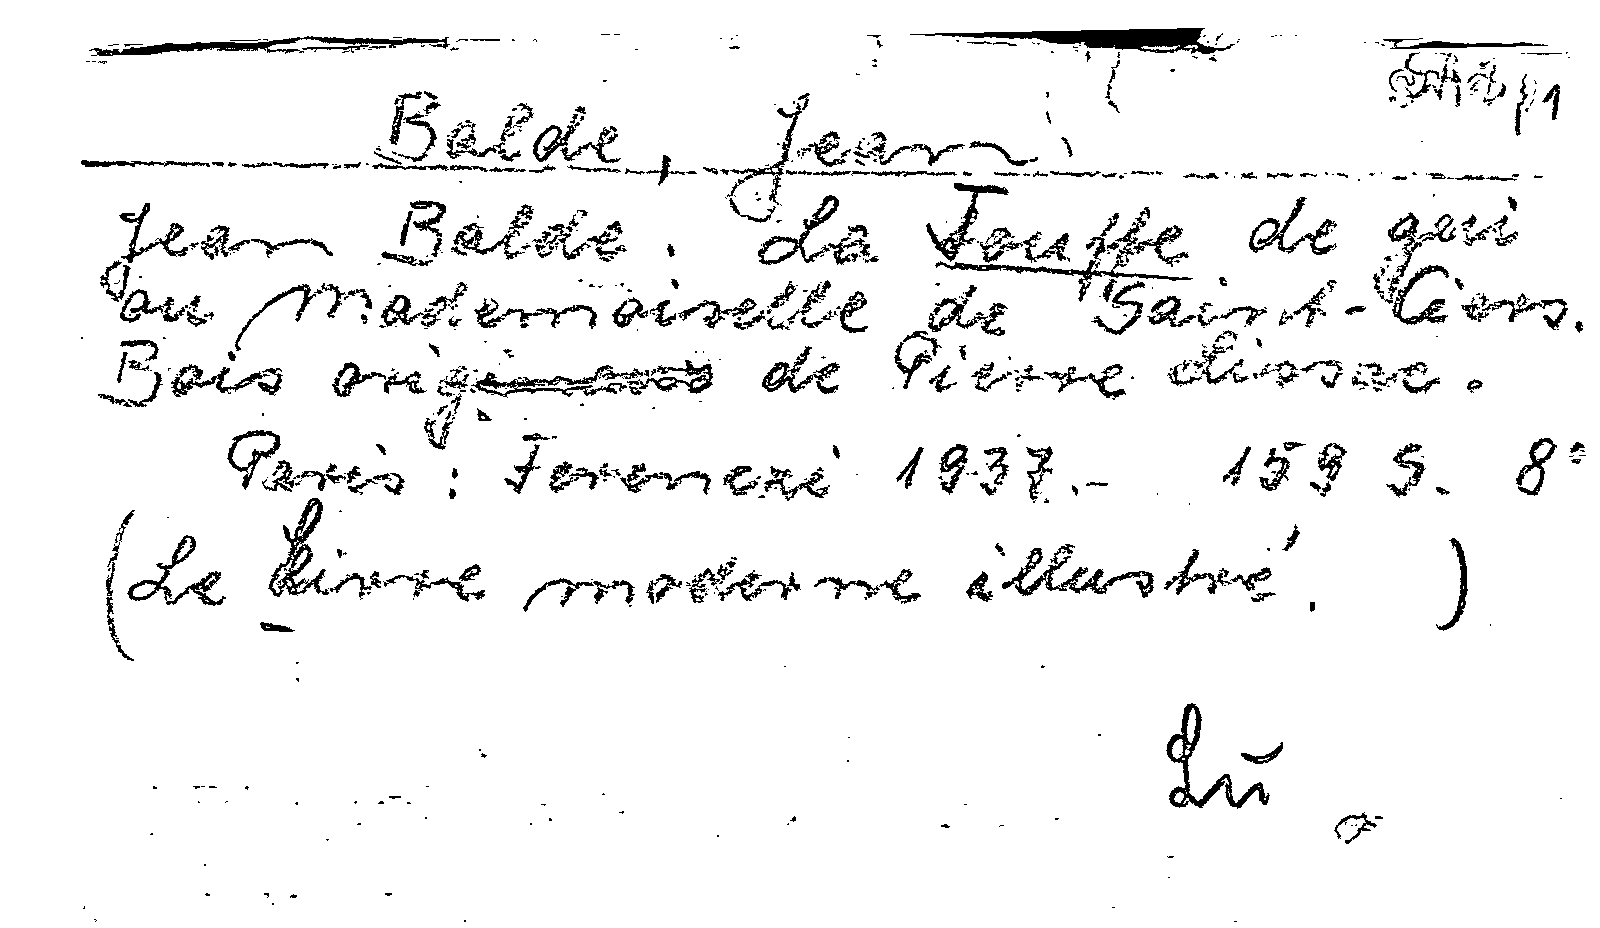 Balde, Jean
Jean Balde. La Touffe de gui
ou Mademoiselle de Saint-Ciers.
Bois orig de Pierre Lissac.
Paris: Ferenczi 1937.- 159 S. 8°
(Le Livre moderne illustré. )
Lu